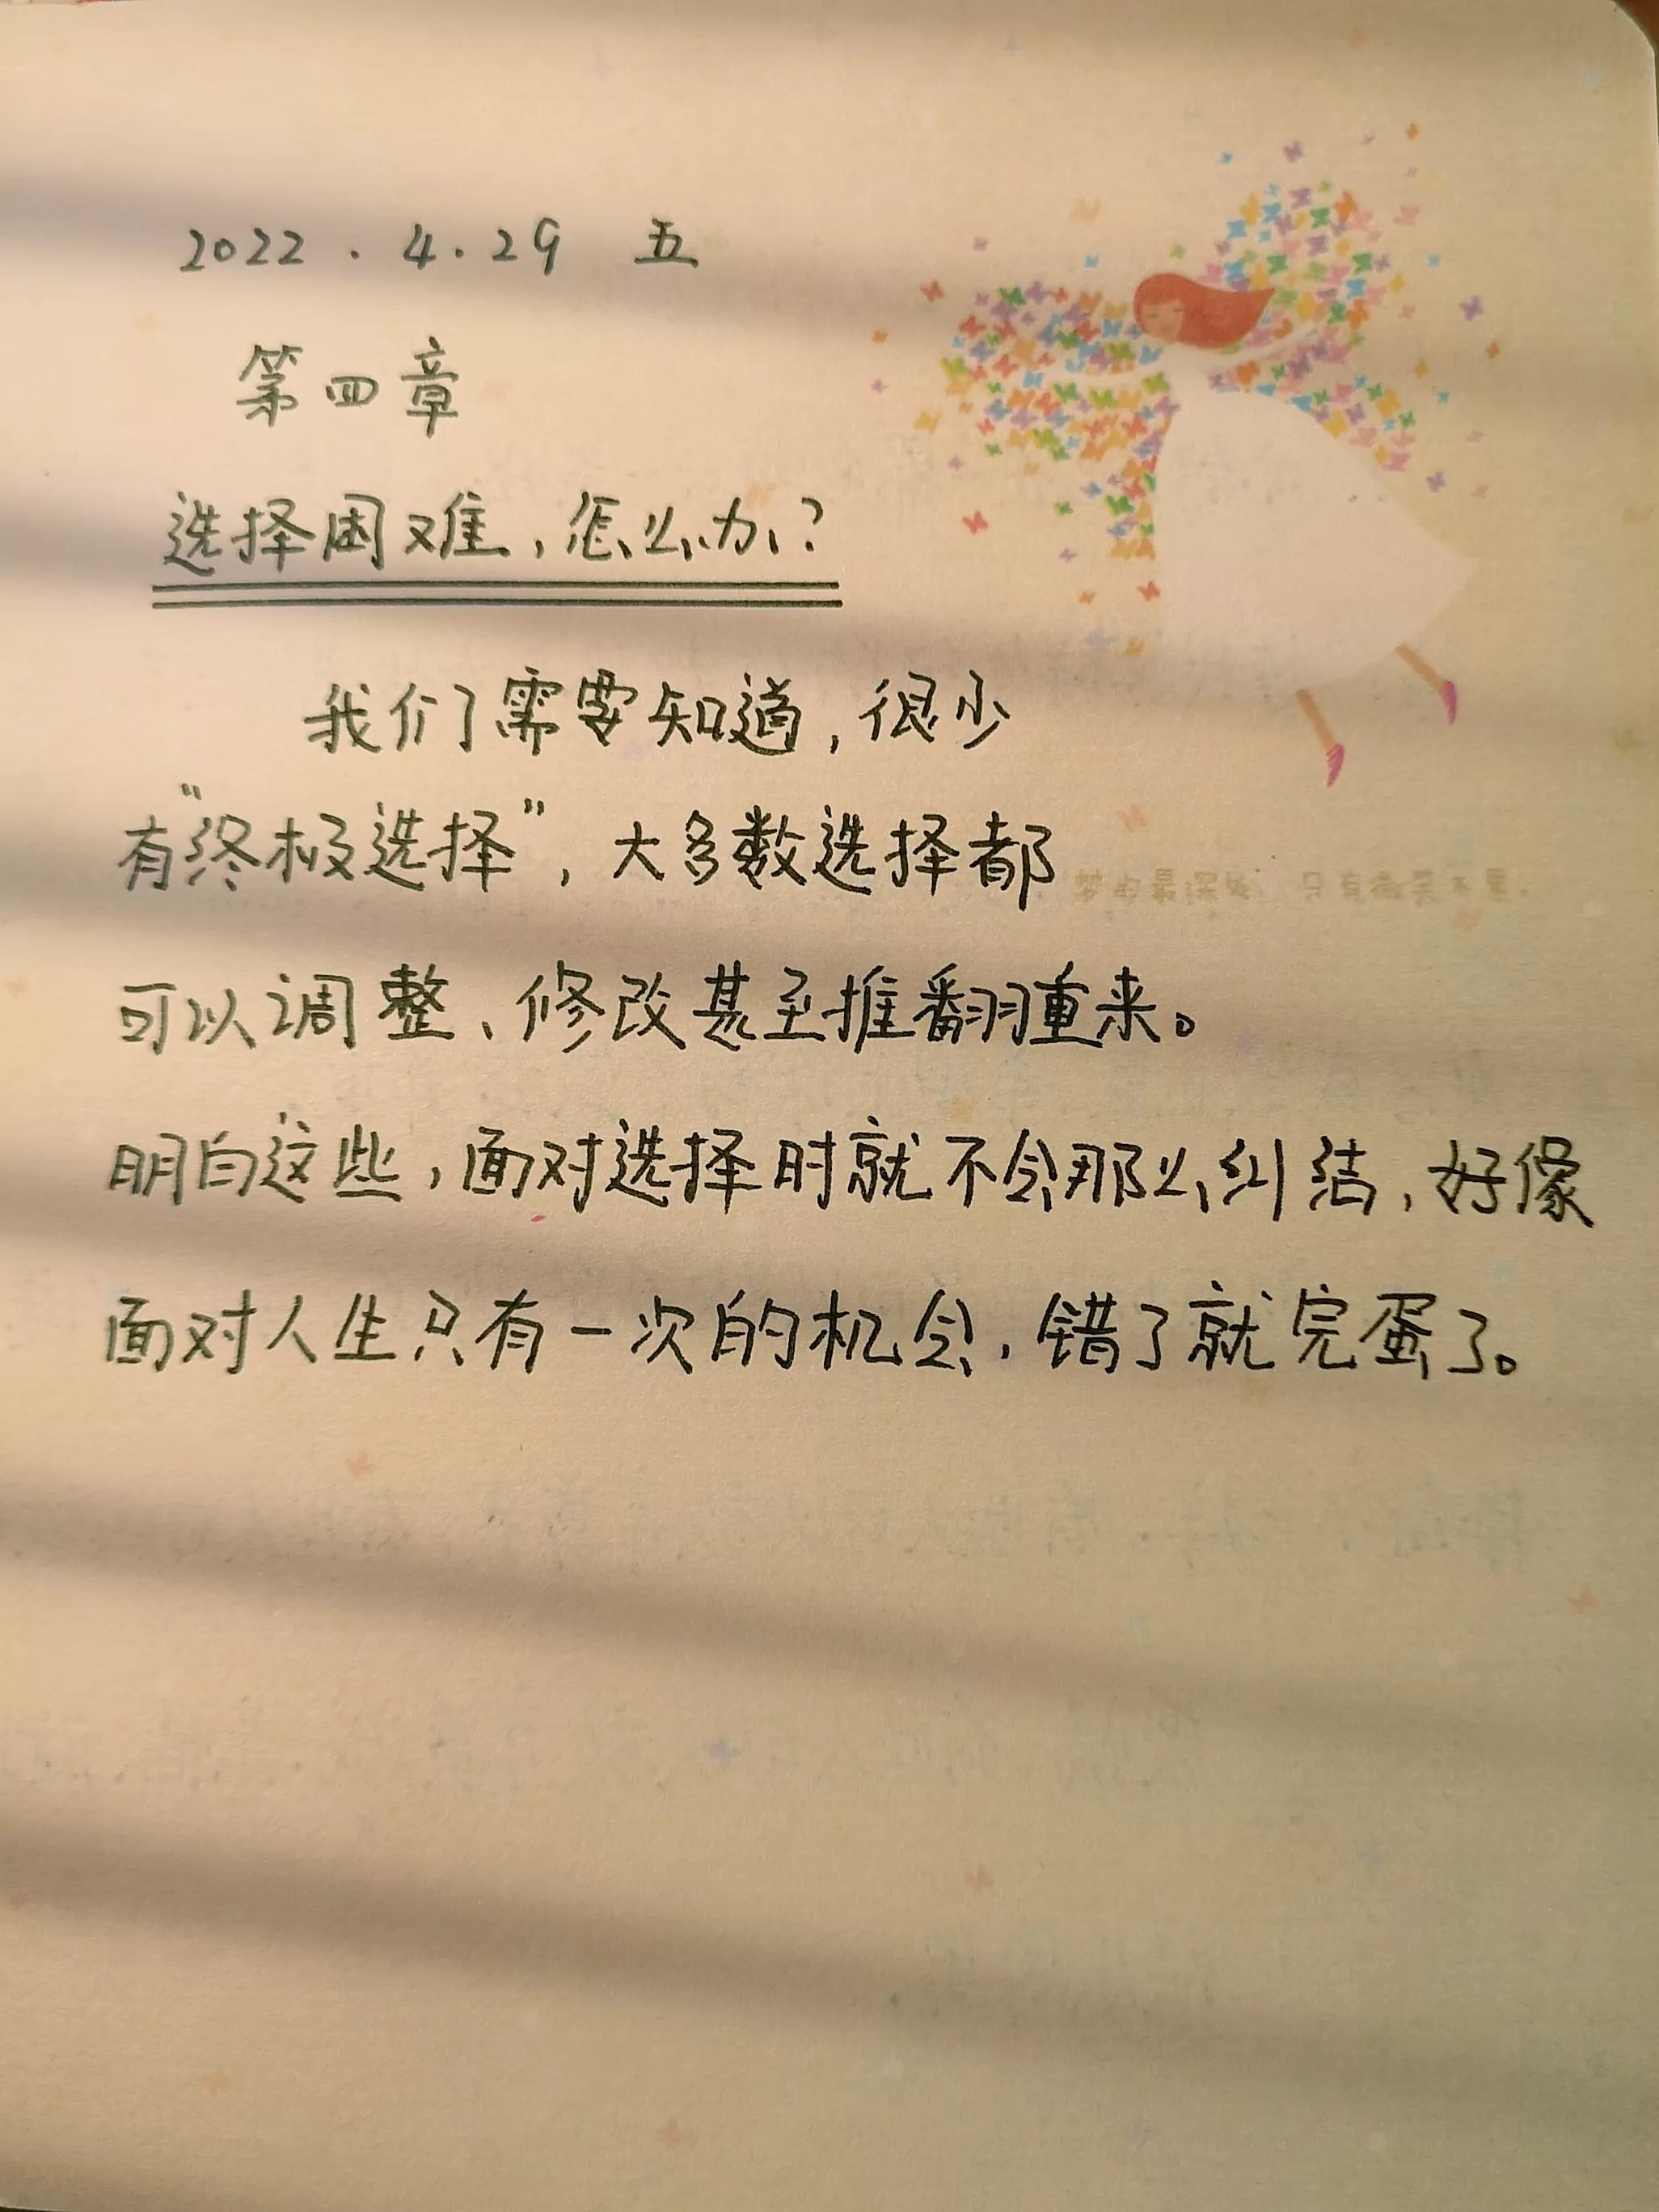 2022.4.29 五
第四章
选择困难，怎么办？
我们需要知道，很少
有“终极选择”，大多数选择都
可以调整、修改甚至推翻重来。
明白这些，面对选择时就不会那么纠结，好像
面对人生只有一次的机会，错了就完蛋了。
梦的最深处 只有微笑不累.